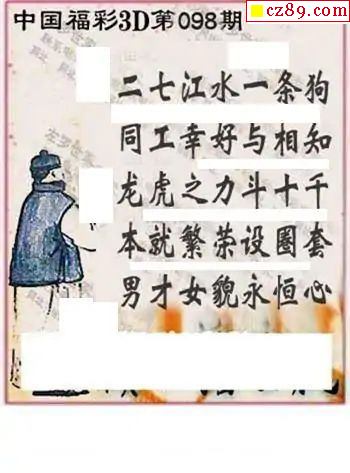 cz89.com
中国福彩3D第098期
二七江水一条狗
同工幸好与相知
龙虎之力斗十千
本就繁荣设圈套
男才女貌永恒心